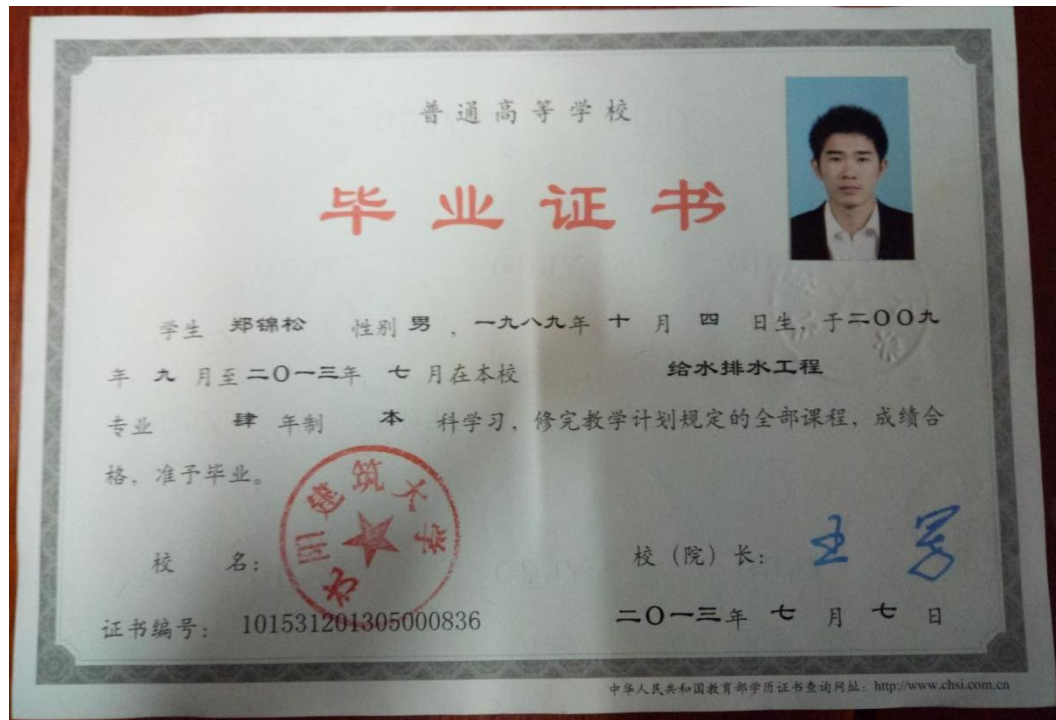 普通高等学校
毕业证书
学生 郑锦松 性别 男 ，一九八九年 十 月 四 日生，于二〇〇九
年 九 月至二〇一三年 七 月在本校 给水排水工程
专业 肆 年制 本 科学习，修完教学计划规定的全部课程，成绩合
格，准予毕业。
建筑大学
校 名： 校（院）长：
证书编号： 101531201305000836 二〇一三年 七 月 七 日
中华人民共和国教育部学历证书查询网址：http://www.chsi.com.cn